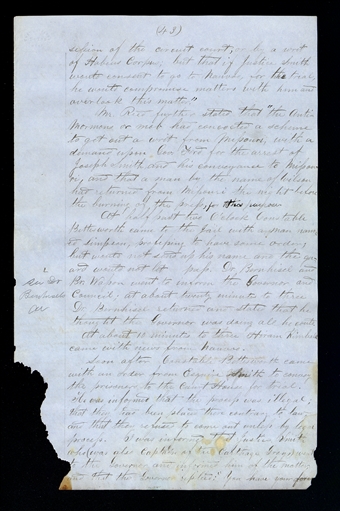 (43)
session of the circuit court, or by a writ
of Habeas Corpus; but that if Justice Smith
would consent to go to Nauvoo for trial,
he would compromise matters with him and
overlook this matter"
Mr Rees further stated that "the Anti-
Mormons or mob has concocted a scheme
to get out a writ from Missouri, with a
demand upon Gov Ford for the arrest of
Joseph Smith and his conveyance to Missou-
ri, and that a man by the name of Wilson
had returned from Missouri the night before
the burning of the press, for this
At half past two Oclock Constable
Bettisworth came to the jail with a man named
Simpson, professing to have some order,
but would not send up his name and the guard
would not let pass. Dr Bernhisel and
Br. Wasson went to inform the Governor and
Council; at about twenty minutes to three
Dr Bernhisel returned and stated that he
thought the Governor was doing all he could
At about 10 minutes to three Hiram Kimball
came with news from
see Dr
Bernhisel
Soon after Constable Bettisworth came
with an order from Smith to convey
the prisoners to the Court House for trial.
He was informed that the process was illegal,
that they had been placed there contrary to law,
and that they refused to come out unless by legal
process. I was informed that Justice Smith
who was also Captain of the Carthage Greys went
to the Governor and informed him of the matter,
and that the Governor replied, "You have your forces